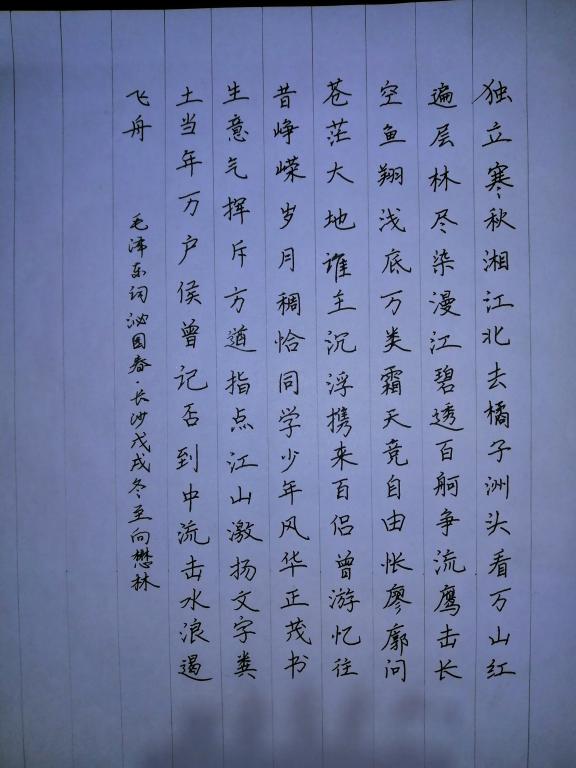 独立寒秋湘江北去橘子洲头看万山红
遍层林尽染漫江碧透百舸争流鹰击长
空鱼翔浅底万类霜天竞自由怅廖廓问
苍茫大地谁主沉浮携来百侣曾游忆往
昔峥嵘岁月稠恰同学少年风华正茂书
生意气挥斥方遒指点江山激扬文字粪
土当年万户侯曾记否到中流击水浪遏
飞舟
毛泽东词沁园春·长沙戊戌冬至向懋林